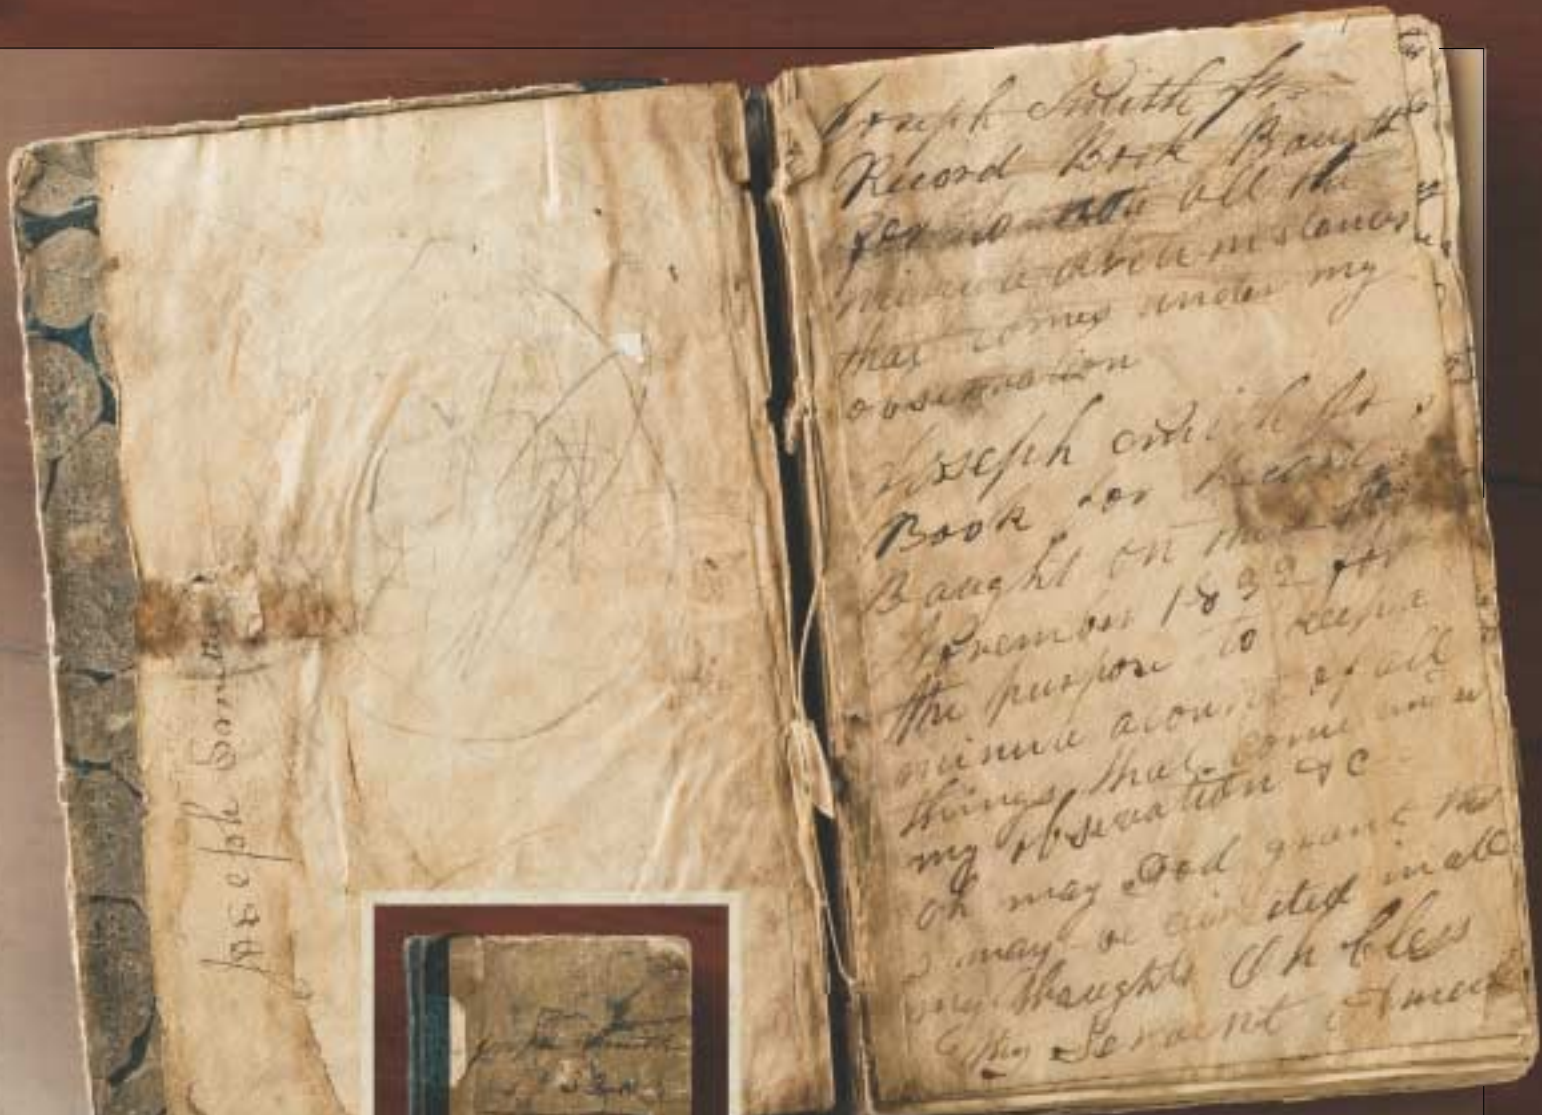 Joseph Smith Jrs
Record Book Baught
for to note all the
minute circumstances
that comes under my
observation
Joseph Smith Jrs
Book for Record
Baught on the
November 1832 for
the purpose to keep a
minute acount of all
things that come under
my observation &c
oh may God grant that
I may be directed in all
my thaughts Oh bless
thy Servent Amen
Joseph